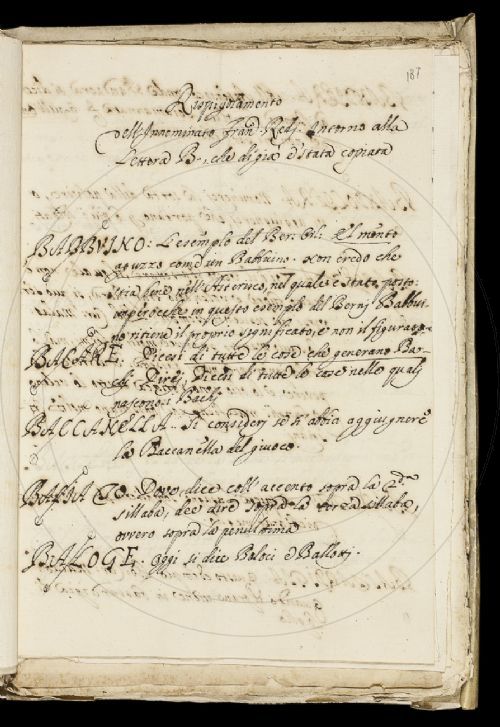 187
Rispigolamento
dell'Innominato Fran. Redj. Intorno alla
Lettera B., che di già è stata copiata
BABBVINO: L'esemplo del Ber: Orl: El mento
aguzzo com'è un Babbuino. Non credo che
stia bene nell'Asterisco, nel quale è stato posto:
imperocche in questo esemplo del Bernj Babbui-
no ritiene il proprio significato, e non il figurato
BACARE. Dicesi di tutte le cose che generano Ba-
chi. Direj. Dicesi di tutte le cose nelle qualj
nascono i Bachj
BACCANELLA.. Si considerj se s'abbia aggiugnere
la Baccanella del giuoco.
Dove dice coll'accento sopra la 2.da
sillaba, dee dire sopra la terza sillaba,
ovvero sopra la penultima
BALOGE. Oggi si dice Baloci e Ballottj.